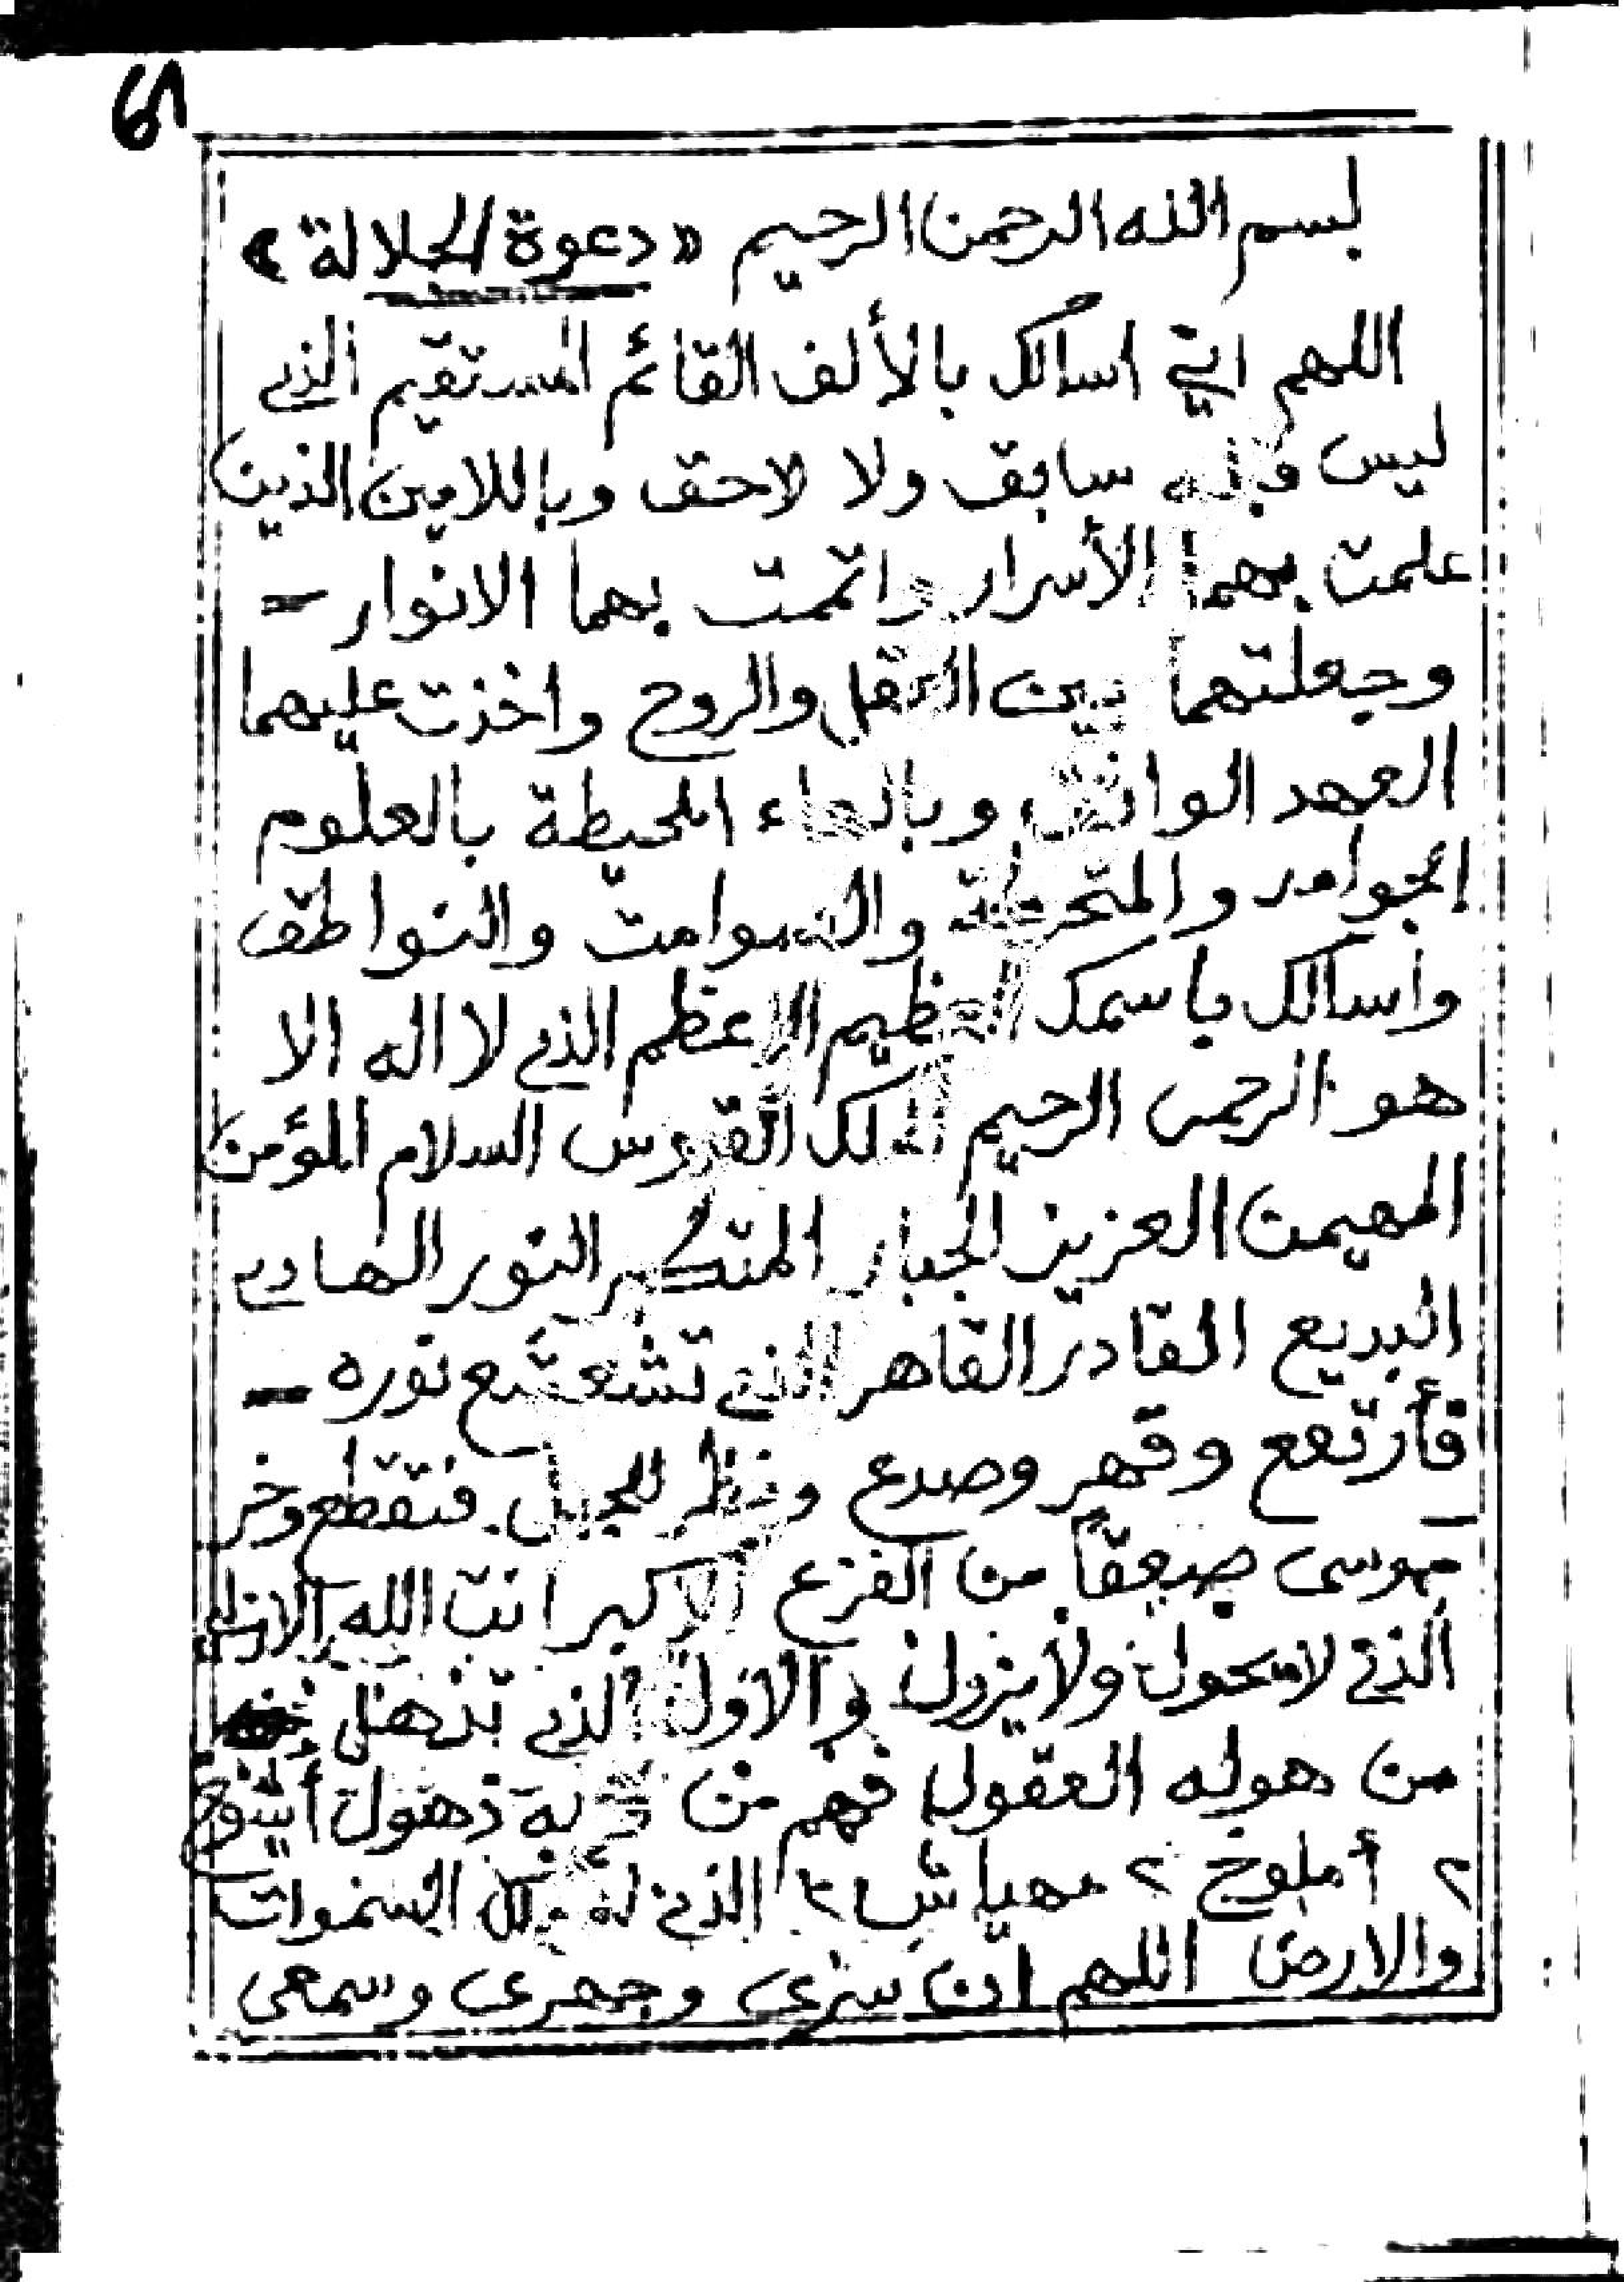 بسم الله الرحمن الرحيم « دعوة الجلالة »
اللهم اني اسالك بالألف القائم المستقيم الذي
ليس قبله سابق ولا لاحق وباللامين الذين
علمت بهما الأسرار واتممت بهما الانوار =
وجعلتهما بين العقل والروح واخذت عليهما
العهد الواثق وبالهاء المحيطة بالعلوم
الجوامد والمتحركة والصوامت والنواطق
وأسالك باسمك العظيم الاعظم الذي لا اله الا
هو الرحمن الرحيم الملك القدوس السلام المؤمن
المهيمن العزيز الجبار المتكبر النور الهادي
البديع القادر القاهر الذي تشعشع نوره -
فأرتفع وقهر وصدع ونظر للجبل فتقطع وخر
موسى صعقاً من الفزع الاكبر انت الله الازلي
الذي لا يحول ولا يزول والاول الذي تذهل
من هوله العقول فهم من ذهول
٢ أملوخ ٢ مهياش ٢ الذي له ملك السموات
والارض اللهم ان سري وجهري وسمعي